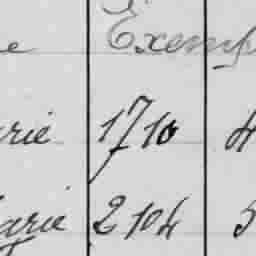 e Exemp
arie 1710 4
garie 2104 5